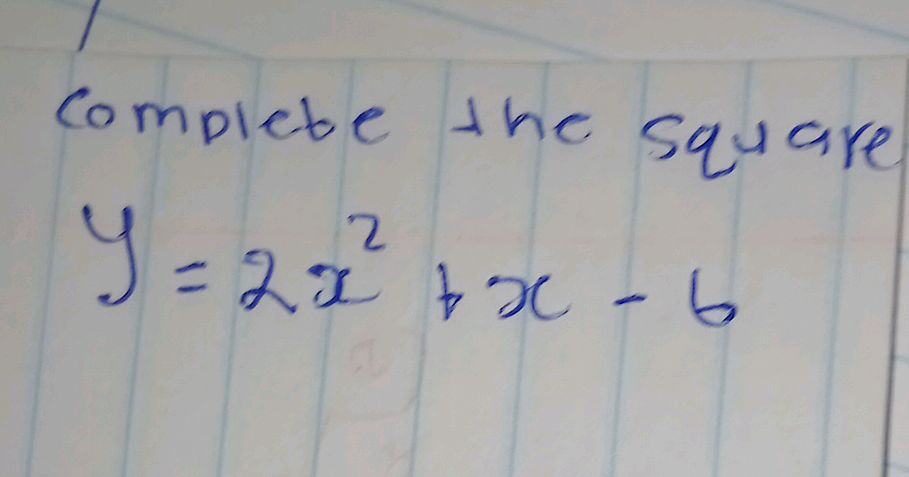 complete the square
y = 2x² + x - 6